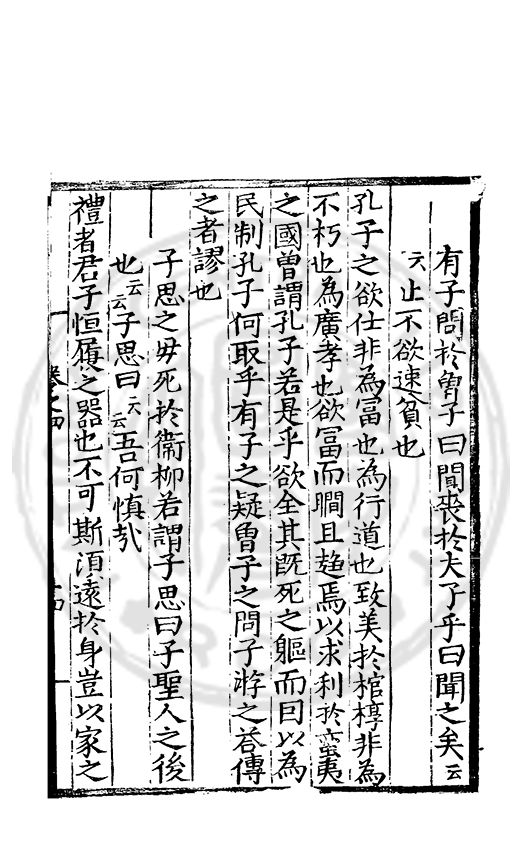 有子問於曾子曰聞喪於夫子乎曰聞之矣云
云止不欲速貧也
孔子之欲仕非為富也為行道也致美於棺椁非為
不朽也為廣孝也欲富而瞯且趋焉以求利於蠻夷
之國曾謂孔子若是乎欲全其既死之軀而曰以為
民制孔子何取乎有子之疑曾子之問子游之荅傳
之者謬也
子思之母死於衞柳若謂子思曰子聖人之後
也云云子思曰云云吾何慎哉
禮者君子恒履之器也不可斯湏逺於身豈以家之
卷之四
十四